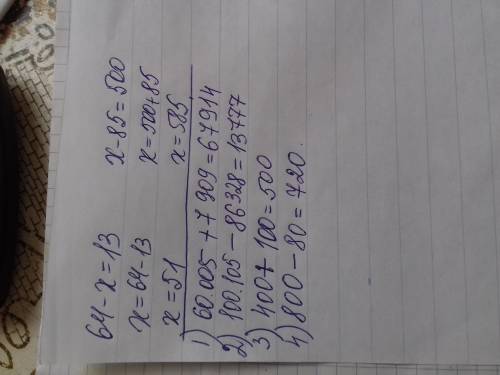 64-x=13
x=64-13
x=51
x-85=500
x=500+85
x=585
1) 60.005+7 909=67914
2) 100.105-86328=13777
3) 400+100=500
4) 800-80=720.